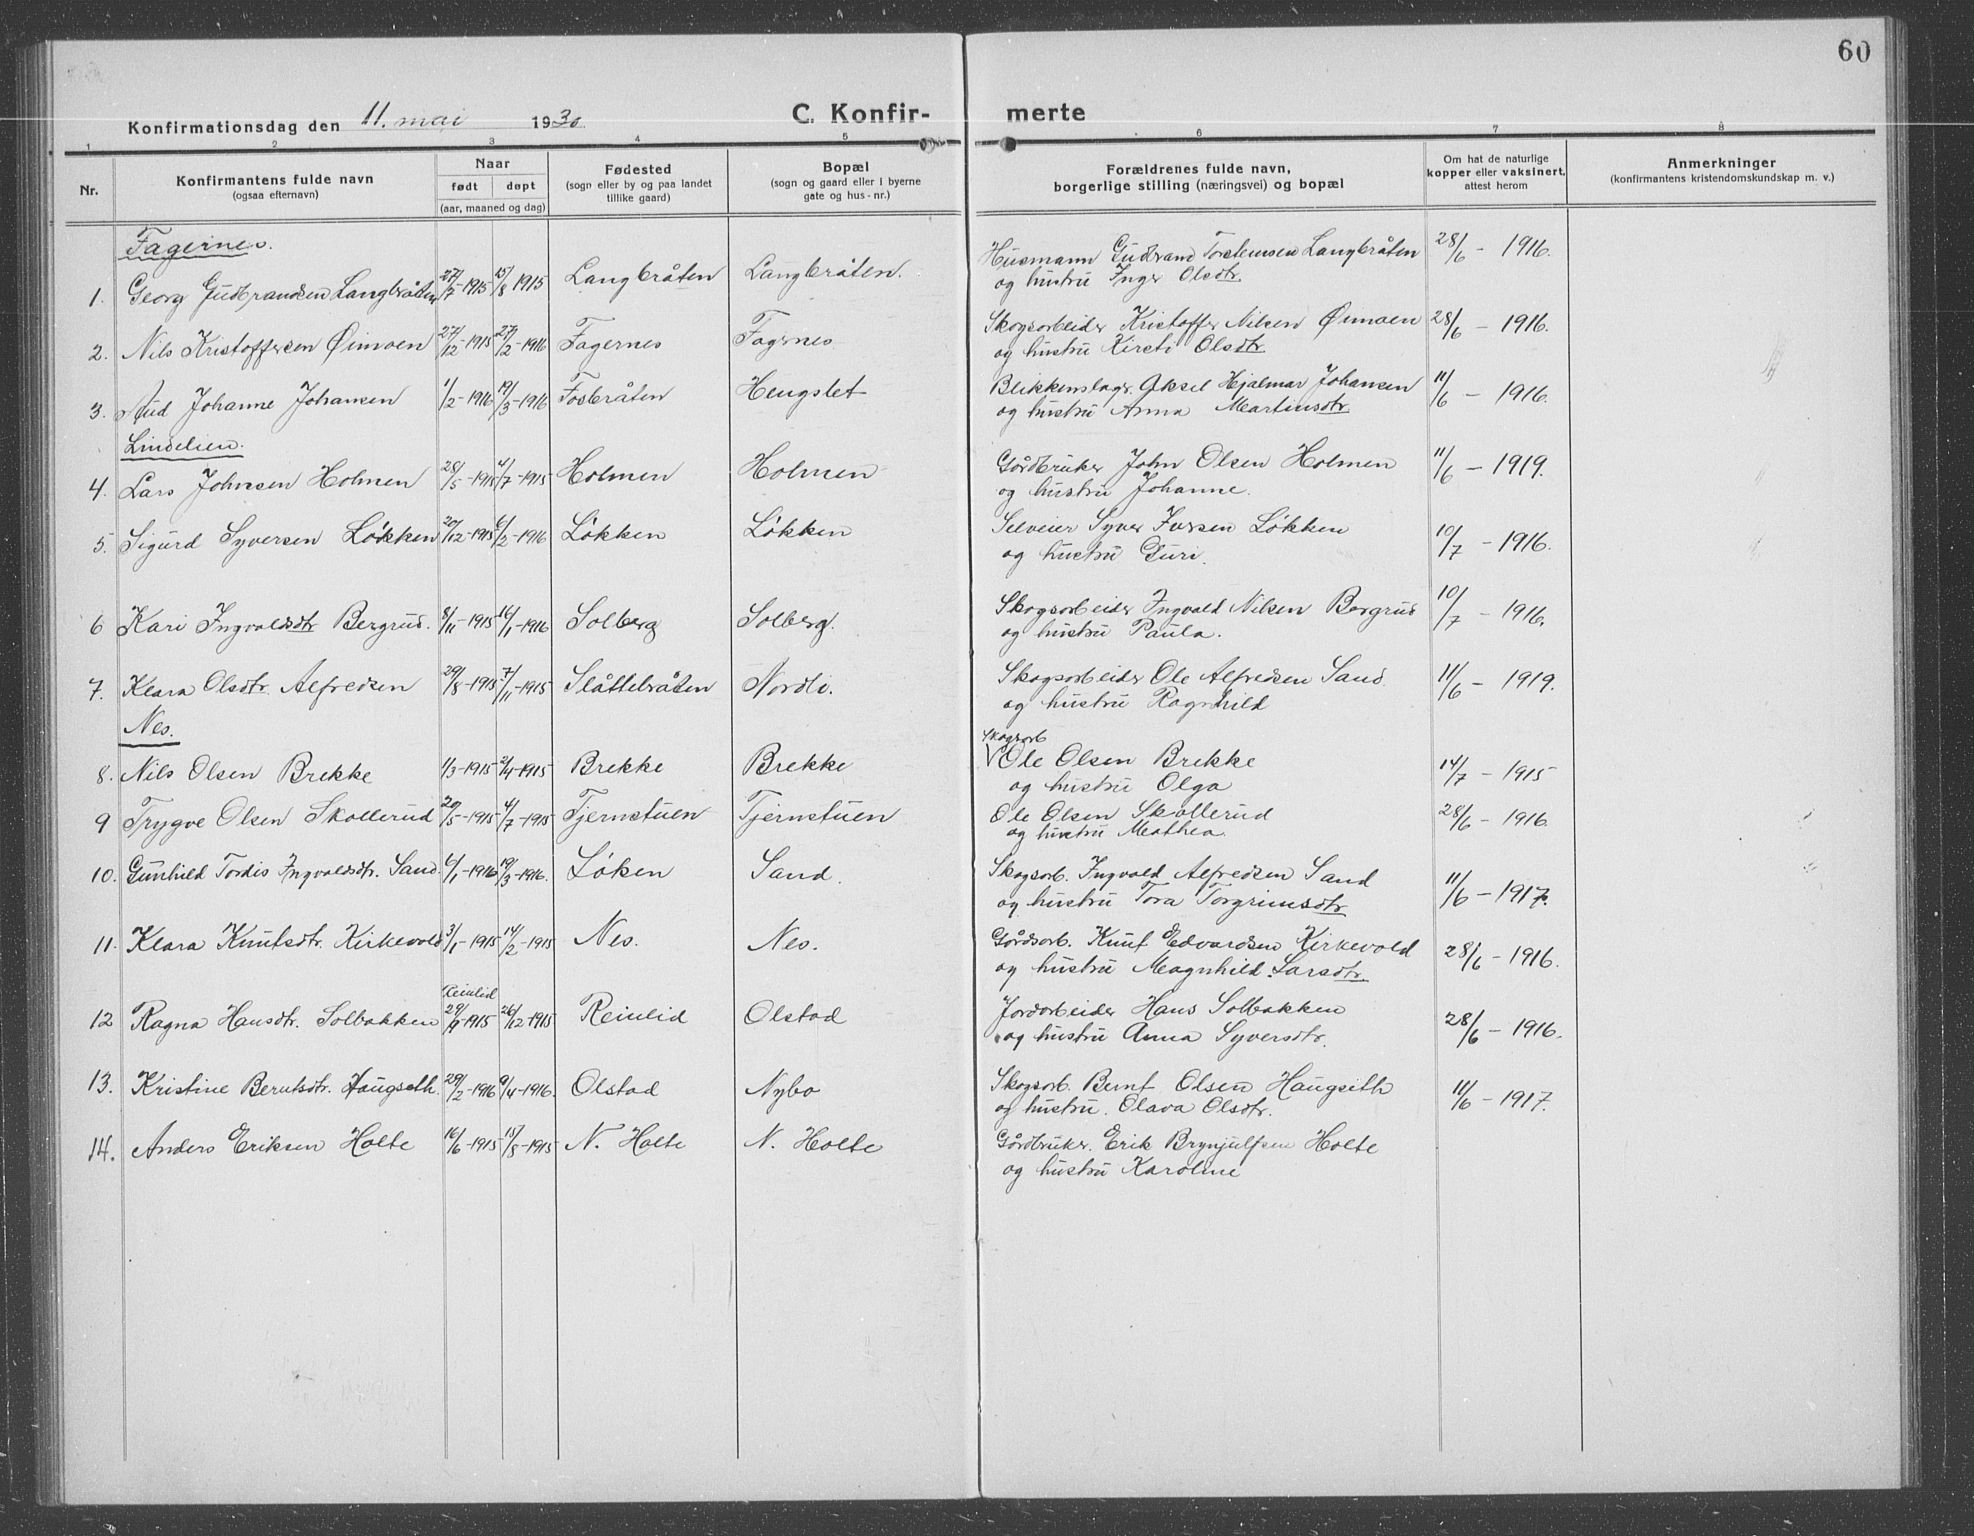 60
Konfirmationsdag den 11. mai 1930
C. Konfir- merte
1 2 3 4 5 6 7 8
Nr.
Konfirmantens fulde navn
(ogsaa efternavn)
Naar
født døpt
(aar, maaned og dag)
Fødested
(sogn eller by og paa landet
tillike gaard)
Bopæl
(sogn og gaard eller i byerne
gate og hus-nr.)
Forældrenes fulde navn,
borgerlige stilling (næringsvei) og bopæl
Om hat de naturlige
kopper eller vaksinert,
attest herom
Anmerkninger
(konfirmantens kristendomskundskap m. v.)
Fagernes.
1. Georg Gudbrandsen Langbråten 27/7-1915 15/8 1915 Langbråten Langbråten. Husmann Gudbrand Torstensen Langbråten 28/6 - 1916.
og hustru Inger Olsdtr.
2. Nils Kristoffersen Øimoen 27/12-1915 27/2-1916 Fagernes Fagernes Skogsarbeider Kristoffer Nilsen Øimoen 28/6 - 1916.
og hustru Kirsti Olsdtr
3. Aud Johanne Johansen 1/2-1916 19/3-1916 Fosbråten Hengslet Blikkenslager Aksel Hjalmar Johansen 11/6 - 1916.
og hustru Anna Martinsdtr.
Lindelien.
4. Lars Johnsen Holmen 28/5-1915 4/7-1915 Holmen Holmen Gårdbruker John Olsen Holmen 11/6 - 1919.
og hustru Johanne.
5. Sigurd Syversen Løkken 20/12-1915 6/2-1916 Løkken Løkken Selveier Syver Iversen Løkken 10/7 - 1916.
og hustru Guri.
6 Kari Ingvaldsdtr Bergrud. 8/11-1915 16/1-1916 Solberg Solberg. Skogsarbeider Ingvald Nilsen Bergrud 10/7 - 1916.
og hustru Paula.
7. Klara Olsdtr. Alfredsen 29/8-1915 7/11-1915 Slåttebråten Nordli. Skogsarbeider Ole Alfredsen Sand. 11/6 - 1919.
og hustru Ragnhild
Nes.
Skogsarb
8. Nils Olsen Brekke 1/3-1915 2/4-1915 Brekke Brekke Ole Olsen Brekke 14/7 - 1915
og hustru Olga
9 Trygve Olsen Skollerud 20/5-1915 4/7-1915 Tjernstuen Tjernstuen Ole Olsen Skollerud 28/6 - 1916.
og hustru Mathea.
10. Gunhild Tordis Ingvaldsdtr. Sand. 4/1-1916 19/3-1916. Løken Sand. Skogsarb. Ingvald Alfredsen Sand 11/6 - 1917.
og hustru Tora Torgrimsdtr
11. Klara Knutsdtr. Kirkevold 3/1-1915 14/2-1915 Nes. Nes. Gårdsarb. Knut Edvardsen Kirkevold 28/6 - 1916.
og hustru Magnhild Larsdtr.
Reinlid
12 Ragna Hansdtr. Solbakken 29/9-1915 26/12-1915 Reinlid Olstad Jordarbeider Hans Solbakken 28/6 - 1916.
og hustru Anna Syversdtr.
13. Kristine Berntsdtr. Haugseth. 29/2-1916 9/4-1916. Olstad Nybo Skogsarb. Bernt Olsen Haugseth 11/6 - 1917.
og hustru. Olava Olsdtr.
14. Anders Eriksen Holte 16/6-1915 15/8-1915 N. Holte N. Holte Gårdbruker. Erik Brynjulfsen Holte
og hustru Karoline